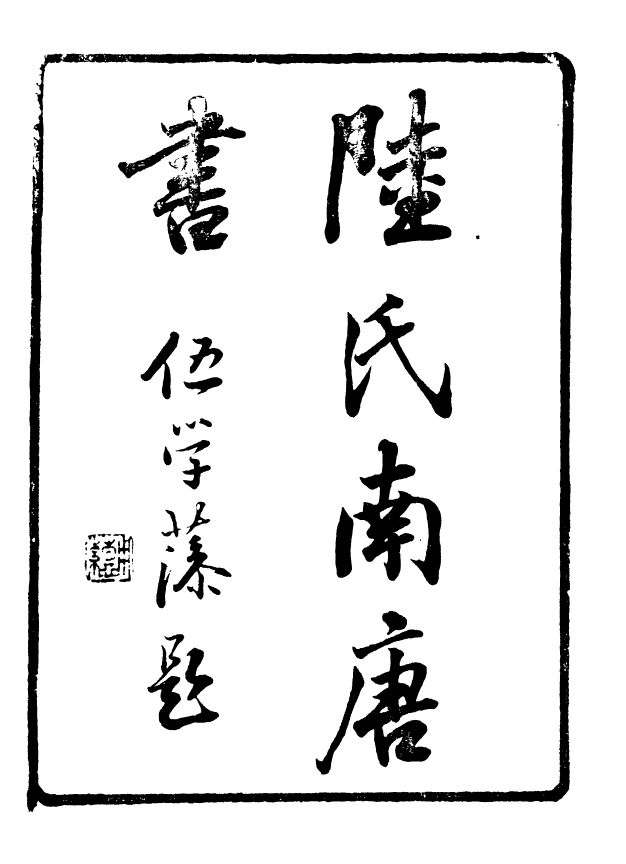 陸氏南唐
書 伍学藻題